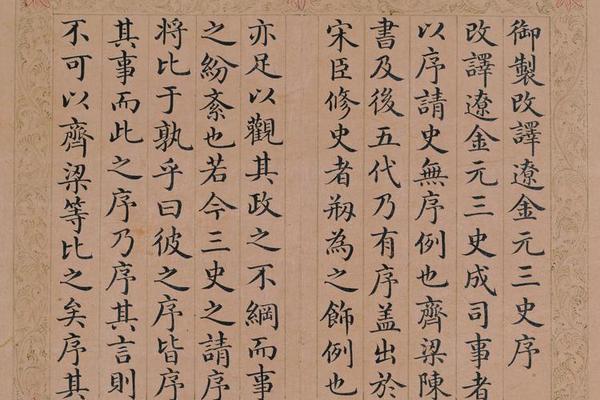 御製改譯遼金元三史序
改譯遼金元三史成司事者
以序請史無序例也齊梁陳
書及後五代乃有序蓋出於
宋臣修史者刱為之飾例也
亦足以觀其政之不綱而事
之紛紊也若今三史之請序
将比于孰乎曰彼之序皆序
其事而此之序乃序其言則
不可以齊梁等比之矣序其